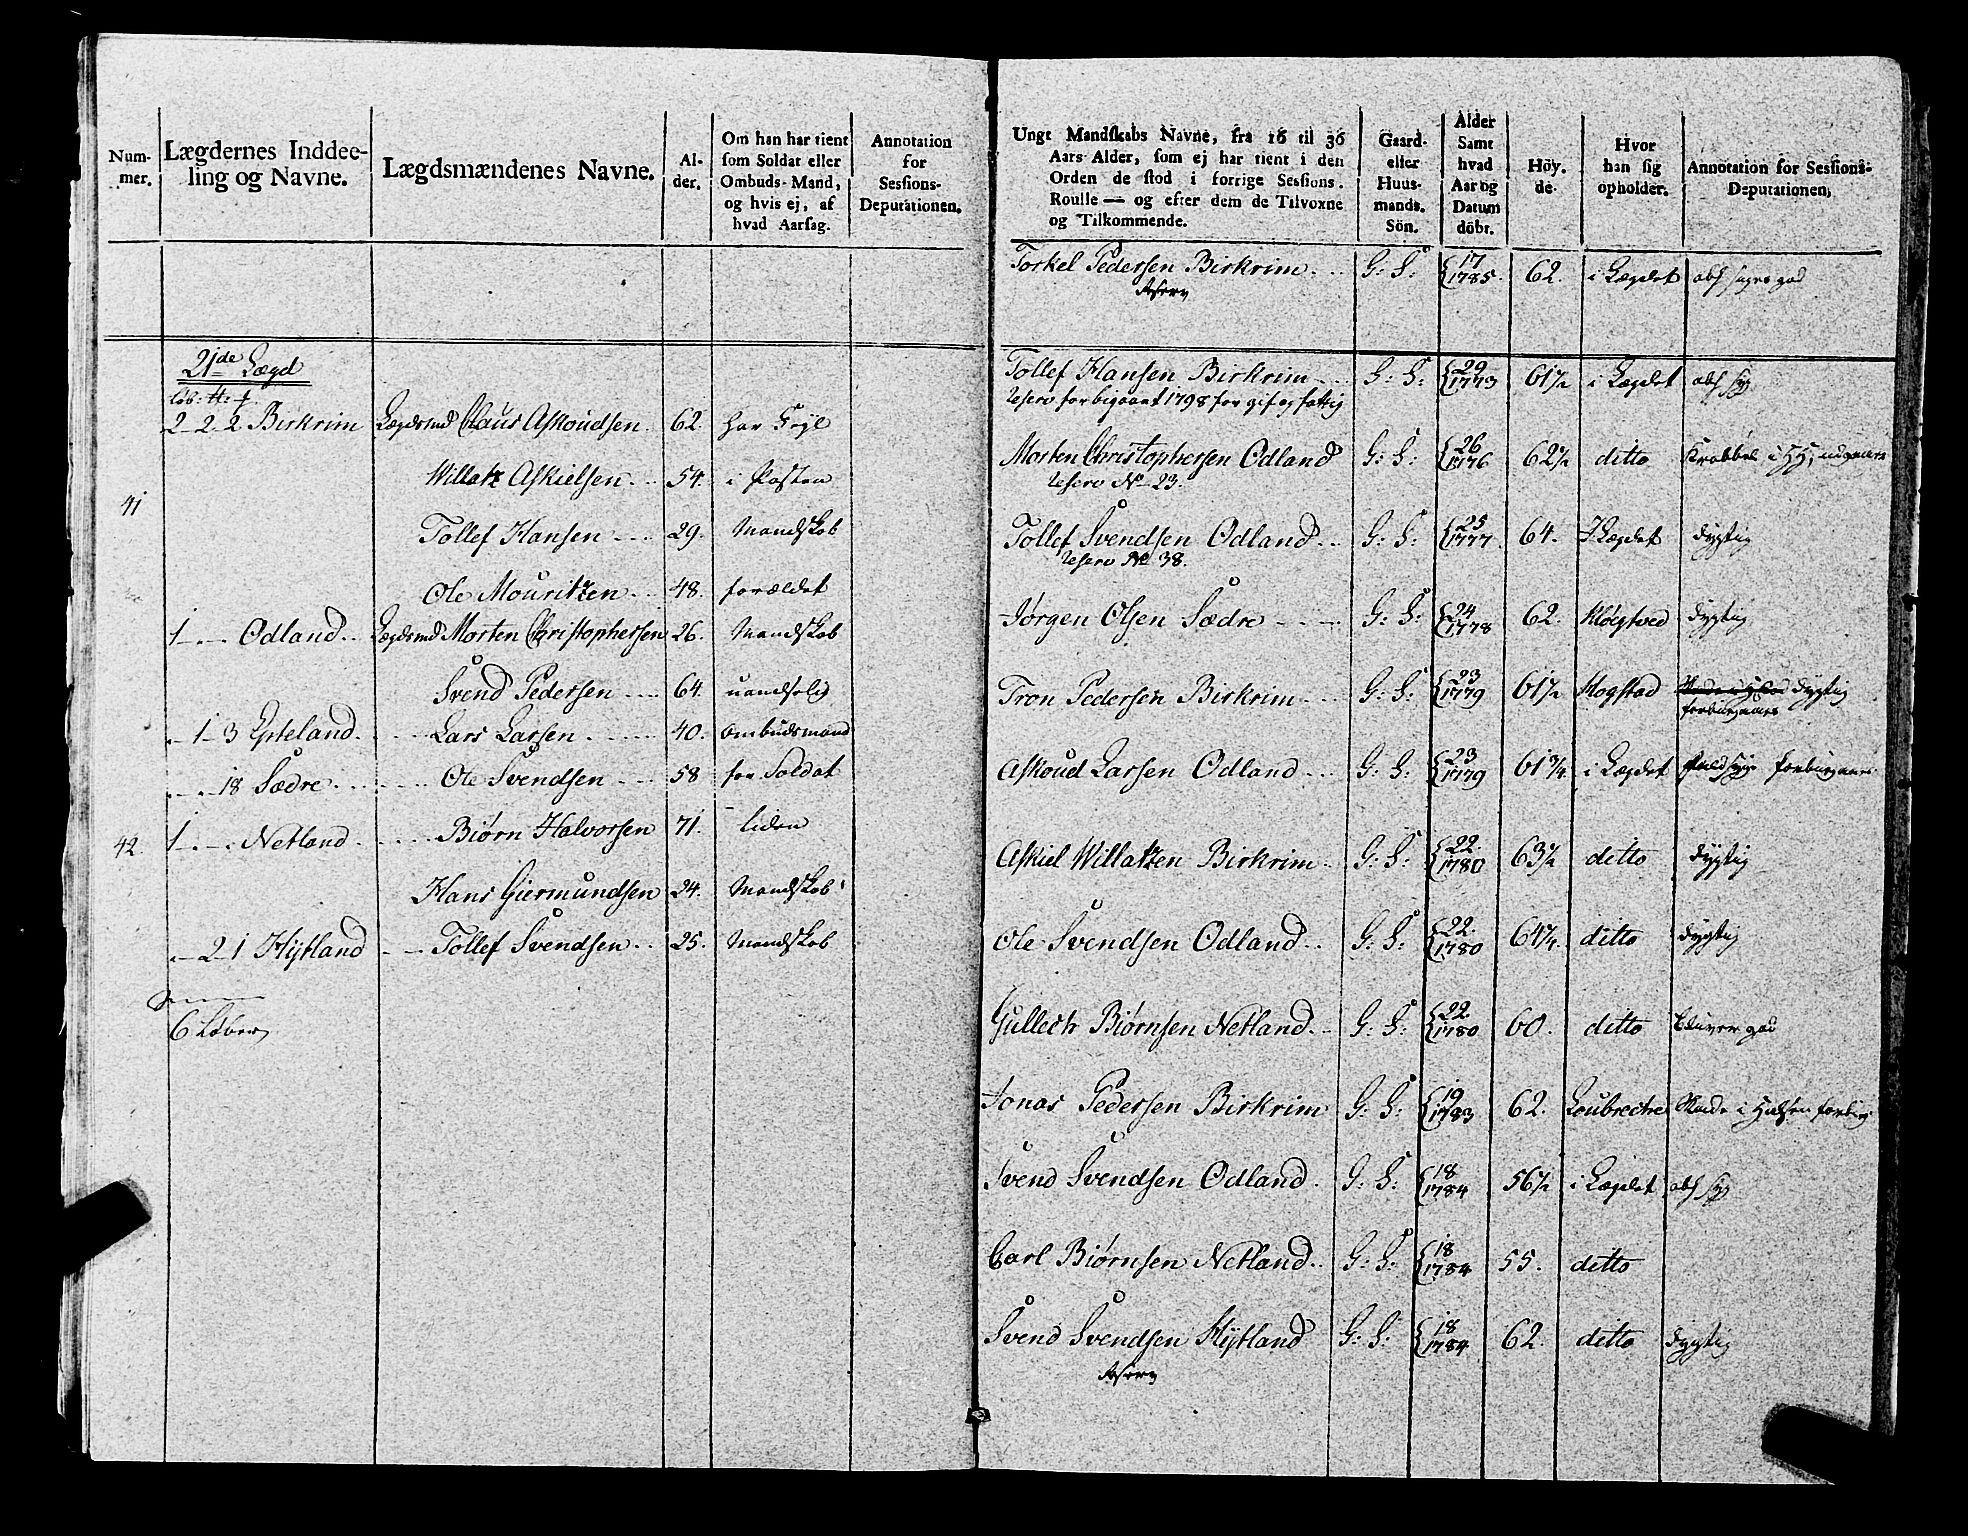 Num-
mer.
Lægdernes Inddee-
ling og Navne.
Lægdsmændenes Navne.
Al-
der.
Om han har tient
som Soldat eller
Ombuds-Mand,
og hvis ej, af
hvad Aarsag.
Annotation
for
Sessions-
Deputationen.
21de Lægd
2 - 2 - 2 Birkrim Lægdsmd Claus Askoudsen. 62.
Willatz Askielsen 54. i Posten
41
Tollef Hansen 29. Mandskab
Ole Mouritzen 48. forældet
1 Odland Lægdsmd Morten Christophersen 26. Mandskab
Svend Pedersen 64.
- 1 - 3 Epteland Lars Larsen 40. ombudsmand
- - 18 Sædre Ole Svendsen 58 for Soldat
42. 1 Netland Biørn Halvorsen 71. liden
Hans Giermundsen 24. Mandskab
- 2 - 1 Hÿtland Tollef Svendsen 25. Mandskab
6 Løber
Ungt Mandskabs Navne, fra 16 til 36
Aars Alder, som ej har tient i den
Orden de stod i forrige Sessions-
Roulle — og efter dem de Tilvoxne
og Tilkommende.
Gaard-
eller
Huus-
mands-
Sön.
Alder
Samt
hvad
Aar og
Datum
döbt.
Höy-
de.
Hvor
han sig
opholder.
Annotation for Sessions-
Deputationen,
Torkel Pedersen Birkrim G: S: 17 1785. 62. i Lægdet
Reserv
Tollef Hansen Birkrim G: S: 29 1773 61½ i Lægdet
Reserv forbigaaet 1798 for gift og fattig
Morten Christophersen Odland G: S: 26 1776 62½ ditto
Reserv No 23.
Tollef Svendsen Odland G: S: 25 1777 64. i Lægdet dygtig
Reserv No 38.
Jørgen Olsen Sædre G: S: 24 1778 62. dygtig
Tron Pedersen Birkrim G: S: 23 1779 61½ Mogstad dygtig
forbigaaes
Askoud Larsen Odland G: S: 23 1779 61¾ i Lægdet forbigaaes
Askiel Willatzen Birkrim G: S: 22 1780 63½ ditto dygtig
Ole Svendsen Odland G: S: 22 1780 64¼ ditto dygtig
Gullech Biørnsen Netland G: S: 22 1780 60. ditto
Jonas Pedersen Birkrim G: S: 19 1783 62. Skade i Halsen
Svend Svendsen Odland G: S: 18 1784 56½ i Lægdet
Carl Biørnsen Netland G: S: 18 1784 55. ditto
Svend Svendsen Hÿtland G: S: 18 1784 62. ditto dygtig
Reserv